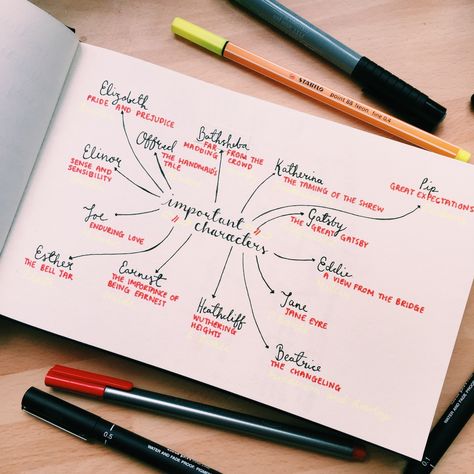 Elizabeth
PRIDE AND PREJUDICE
Offred
THE HANDMAID'S
TALE
Bathsheba
FAR FROM THE
MADDING CROWD
Katherina
THE TAMING OF THE SHREW
Pip
GREAT EXPECTATIONS
Elinor
SENSE AND
SENSIBILITY
Gatsby
THE GREAT GATSBY
important
characters
Joe
ENDURING LOVE
Eddie
A VIEW FROM THE BRIDGE
Esther
THE BELL JAR
Earnest
THE IMPORTANCE OF
BEING EARNEST
Heathcliff
WUTHERING
HEIGHTS
Jane
JANE EYRE
Beatrice
THE CHANGELING
STABILO point 88 Neon fine 0,4
0.5
WATER AND FADE PROOF, PIGMENT